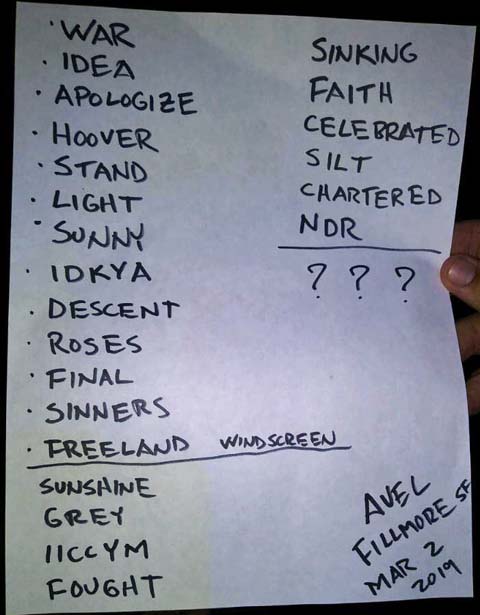 · WAR
· IDEA
· APOLOGIZE
· HOOVER
· STAND
· LIGHT
· SUNNY
· IDKYA
· DESCENT
· ROSES
· FINAL
· SINNERS
· FREELAND WINDSCREEN
SUNSHINE
GREY
IICCYM
FOUGHT
SINKING
FAITH
CELEBRATED
SILT
CHARTERED
NDR
? ? ?
AVEL
FILLMORE SF
MAR 2
2019